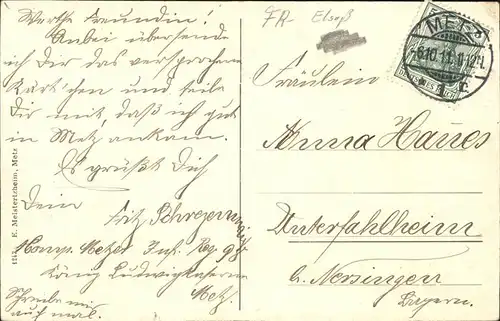 Werthe Freundin!
Anbei übersende
ich Dir das versprochene
Kärtchen und teile
Dir mit, daß ich gut
in Metz ankam.
Es grüßt Dich
Dein
Fritz
Komp. Metzer Inf. Reg 98
König Ludwigkaserne
Metz.
Schreibe mir
auch mal.
E. Meistertzheim, Metz
FR- Elsaß
METZ
DEUTSCHES REICH
Fräulein
Anna Haues
Unterfahlheim
b. Nersingen
Bayern.